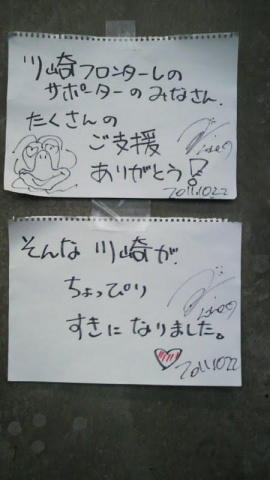 川崎フロンターレの
サポーターのみなさん.
たくさんの
ご支援
ありがとう!
2011.10.22
そんな 川崎が.
ちょっぴり
すきになりました。
2011.10.22